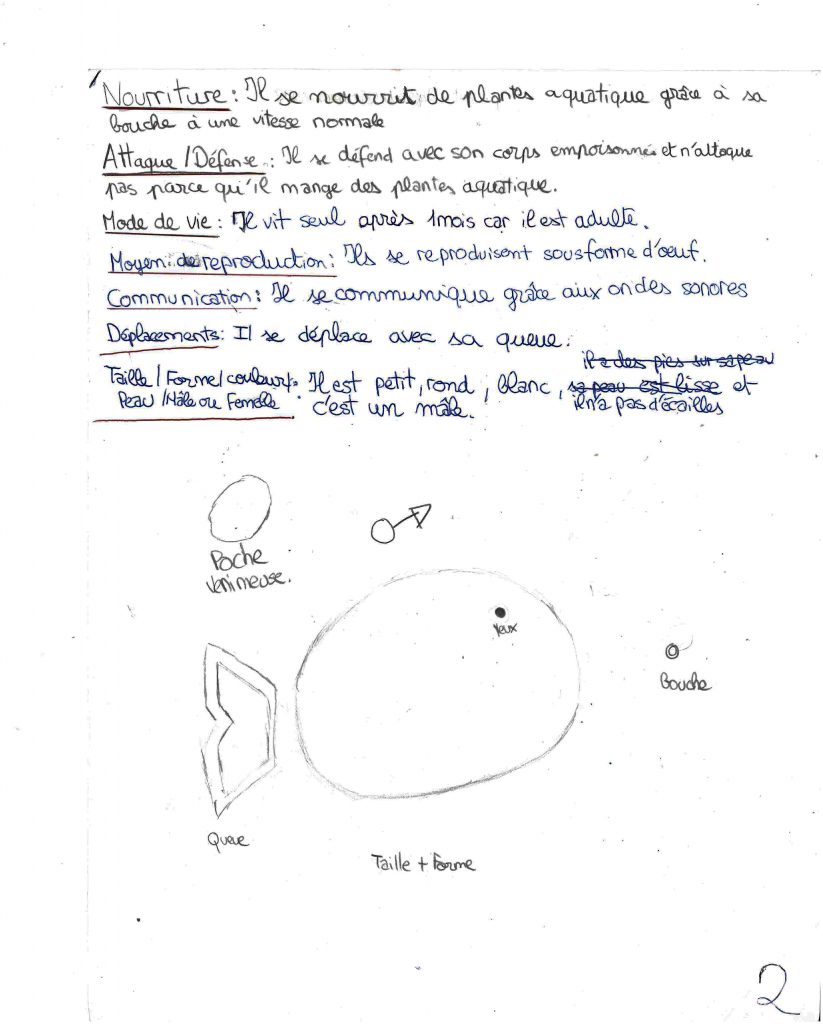 Nourriture : Il se nourrit de plantes aquatique grâce à sa
bouche à une vitesse normale
Attaque / Défense : Il se défend avec son corps empoisonné et n'attaque
pas parce qu'il mange des plantes aquatique.
Mode de vie : Il vit seul après 1 mois car il est adulte.
Moyen de reproduction : Ils se reproduisent sous forme d'oeuf.
Communication : Il se communique grâce aux ondes sonores
Déplacements : Il se déplace avec sa queue.
il a des pies sur sa peau
Taille / Forme / couleur : Il est petit, rond, blanc, sa peau est lisse et
Peau / Mâle ou Femelle c'est un mâle. il n'a pas d'écailles
Poche
Venimeuse.
Yeux
Bouche
Queue
Taille + Forme
2